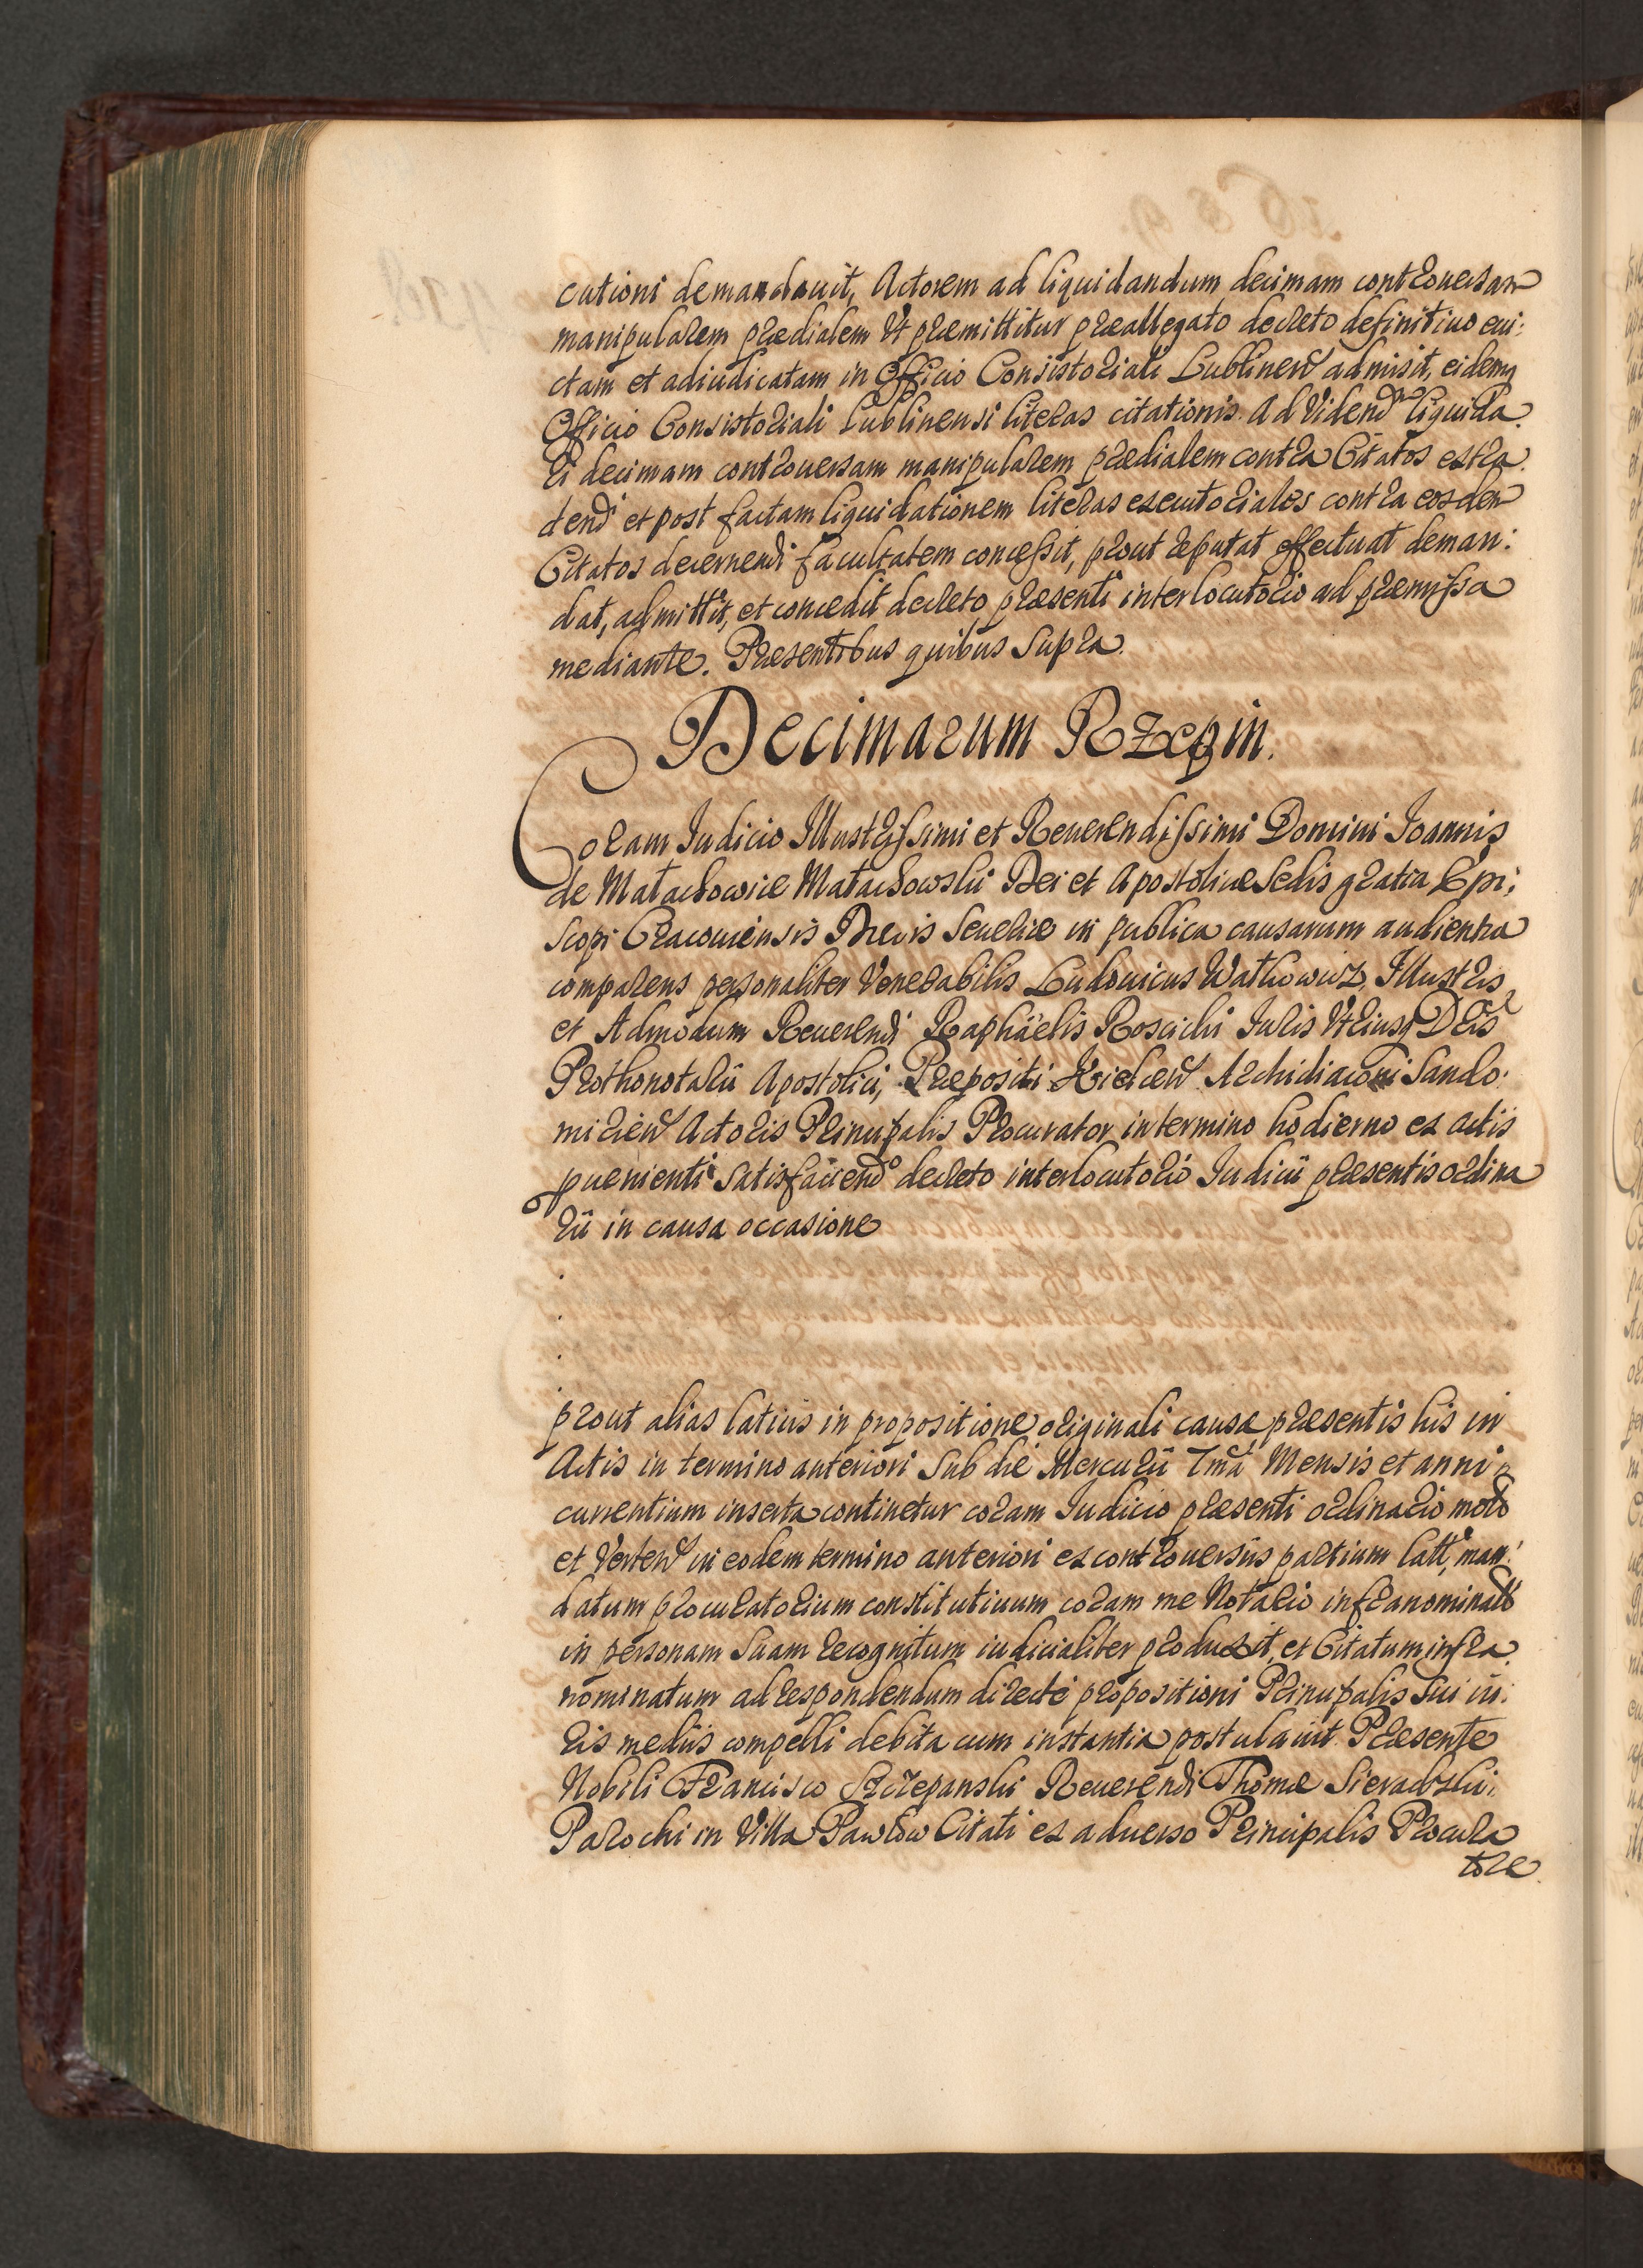 cutioni demandauit, Actorem ad liquidandum decimam controuersam
manipularem praedialem Vt praemittitur praeallegato decreto definitiuo eui:
ctam et adiudicatam in Officio Consistoriali Lublinen admisit, eidemq
Officio Consistoriali Lublinensi literas citationis Ad Videnđ liquida.
ri decimam controuersam manipularem praedialem contra Citatos extra.
denđi et post factam liquidationem literas executoriales contra eosdem
Citatos decernendi facultatem concessit, prout reputat effectuat deman:
dat, admittit, et concedit decreto praesenti interlocutorio ad praemissa
mediante. Praesentibus quibus supra.
Decimarum Rzepin.
Coram Iudicio Illustrissimi et Reuerendissimi Domini Ioannis
de Małachowice Małachowski Dei et Apostolicae Sedis gratia Epi:
scopi Cracouiensis Ducis Seueriae in publica causarum audientia
comparens personaliter Venerabilis Ludouicus Watkowicz, Illustris
et Admodum Reuerendi Raphaëlis Roscichi Iuris Vtriusq Dris
Prothonotarii Apostolici, Praepositi Kielcen Archidiaconi Sando:
mirien Actoris Principalis Procurator in termino hodierno ex actis
puenienti satisfacienđo decreto interlocutorio Iudicii praesentis ordina
rii in causa occasione
prout alias latius in propositione originali causae praesentis his in
Actis in termino anteriori sub die Mercurii 7ma Mensis et anni
currentium inserta continetur coram Iudicio praesenti ordinario moto
et Verten in eodem termino anteriori ex controuersiis partium latt, man:
datum procuratorium constitutiuum coram me Notario infranominato
in personam suam recognitum iudicialiter produxit, et Citatum infra
nominatum ad respondendum directe propositioni Principalis sui iu:
ris mediis compelli debita cum instantia postulauit. Praesente
Nobili Francisco Szczepanski Reuerendi Thomae Sieradzki:
Parochi in Villa Pawłow Citati ex aduerso Principalis Procura
tore